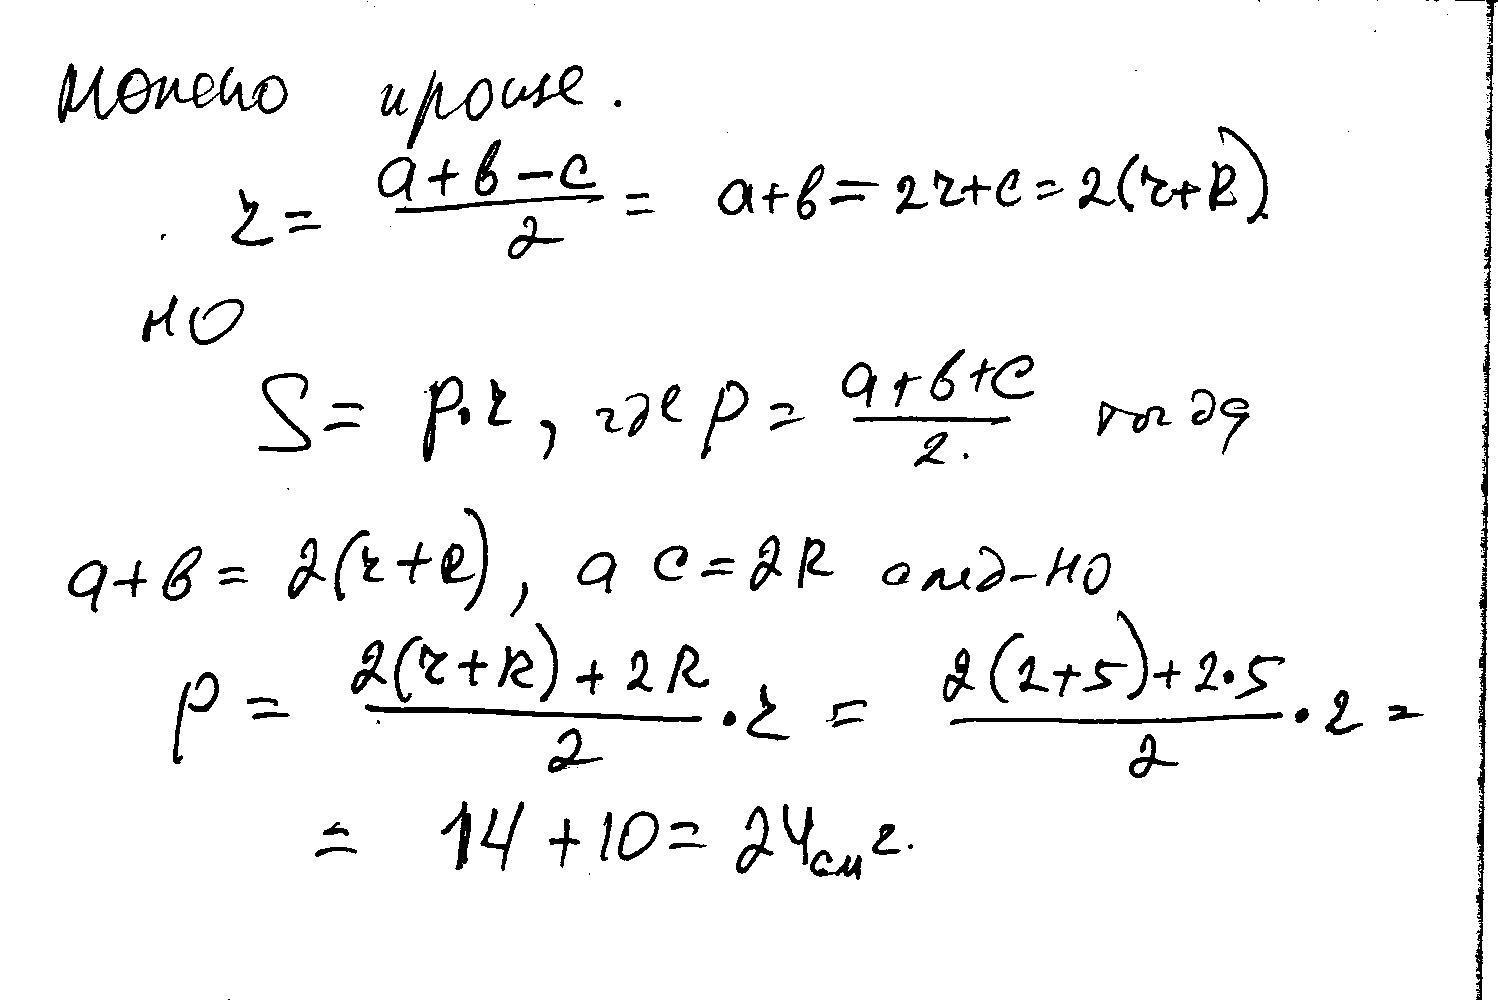 можно проще.
r = (a+b-c)/2 = a+b = 2r+c = 2(r+R)
но
S = p·r, где p = (a+b+c)/2. тогда
a+b = 2(r+R), а c = 2R след-но
p = (2(r+R)+2R)/2 · r = (2(2+5)+2·5)/2 · 2 =
= 14+10 = 24 см².